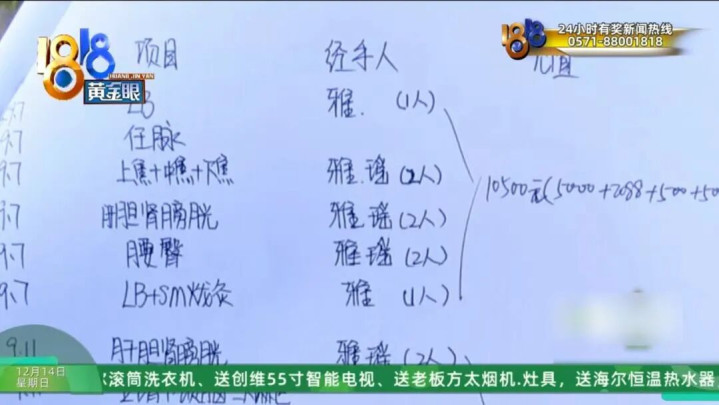 1818
HUANG JIN YAN
黄金眼
24小时有奖新闻热线
0571-88001818
项目 经手人
LB 雅. (1人)
9.7 任脉
9.7 上焦+中焦+下焦 雅.瑶(2人)
10500元(5000+2088+500+50
9.7 肝胆肾膀胱 雅.瑶(2人)
9.7 腰臀 雅瑶(2人)
9.7 LB+SM火灸 雅 (1人)
9.11 肝胆肾膀胱 雅瑶(2人)
12月14日
星期日
滚筒洗衣机、送创维55寸智能电视、送老板方太烟机.灶具，送海尔恒温热水器